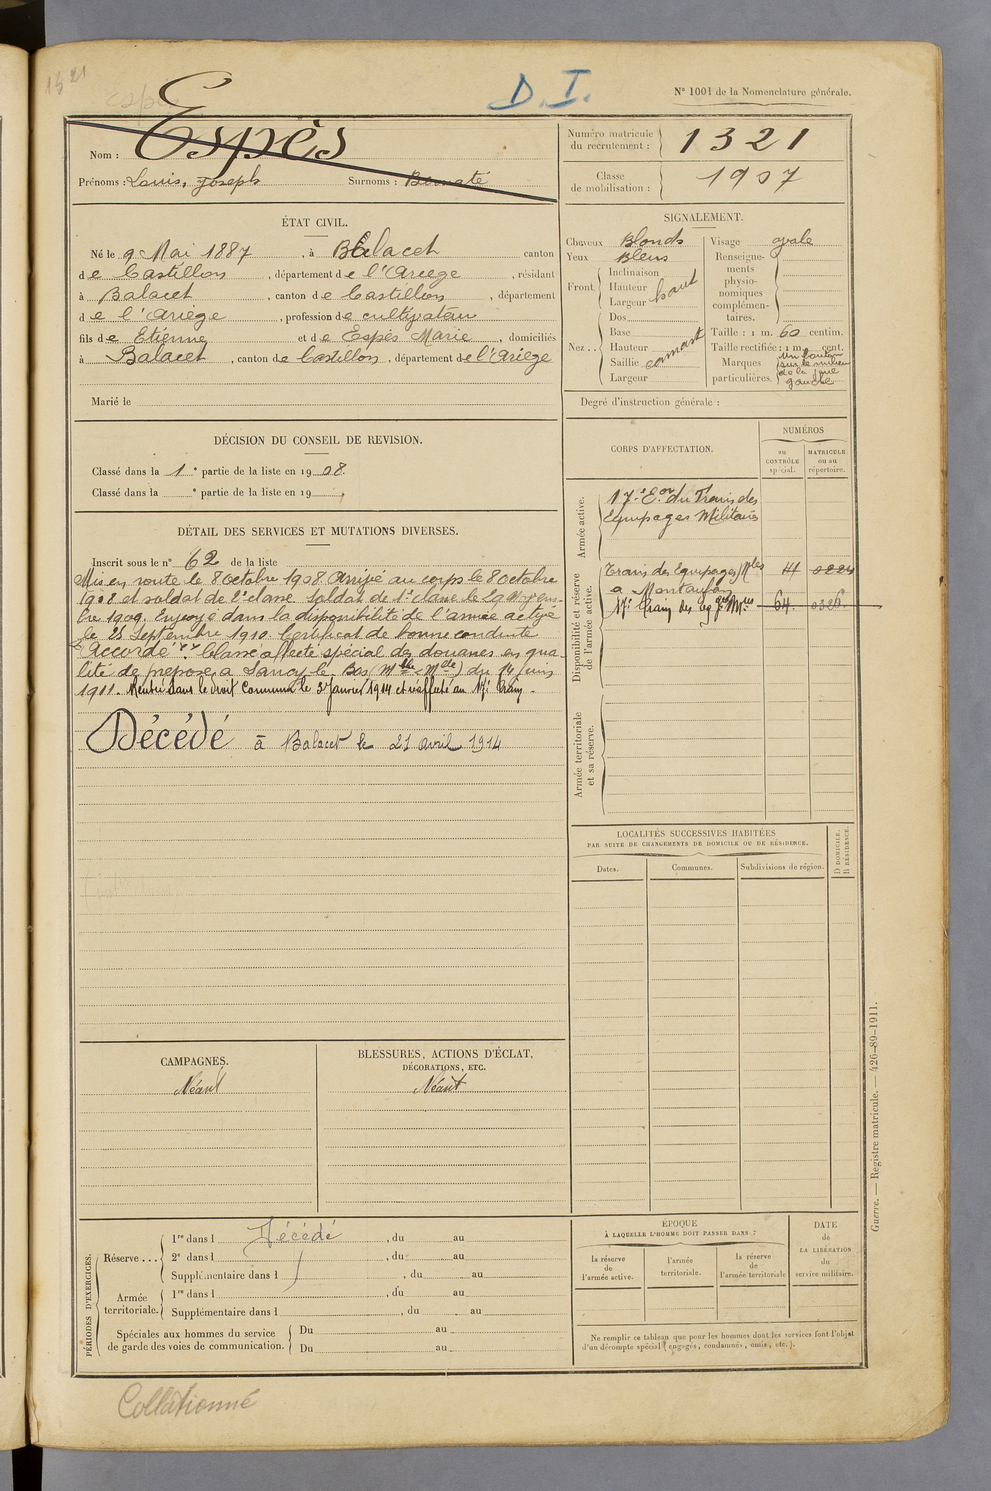 1321
D. I.
N° 1001 de la Nomenclature générale.
Nom : Espès
Prénoms : Louis, Joseph Surnoms : Bernaté
Numéro matricule du recrutement : 1321
Classe de mobilisation : 1907
ÉTAT CIVIL.
Né le 9 Mai 1887, à Balacet canton
de Castillon, département de l'Ariège, résidant
à Balacet, canton de Castillon, département
de l'Ariège, profession de cultivateur
fils de Etienne et de Espès Marie, domiciliés
à Balacet, canton de Castillon, département de l'Ariège
Marié le
SIGNALEMENT.
Cheveux Blonds
Yeux Bleus
Front. Inclinaison
Hauteur haut
Largeur
Nez .. Dos
Base
Hauteur
Saillie
Largeur
Visage ovale
Renseignements physionomiques complémentaires.
Taille : 1 m. 60 centim.
Taille rectifiée : 1 m. cent.
Marques particulières. un bouton
sur le milieu
de la joue
gauche
Degré d'instruction générale :
DÉCISION DU CONSEIL DE REVISION.
Classé dans la 1e partie de la liste en 1908.
Classé dans la e partie de la liste en 19 .
DÉTAIL DES SERVICES ET MUTATIONS DIVERSES.
Inscrit sous le n° 62 de la liste
Mis en route le 8 octobre 1908. Arrivé au corps le 8 octobre
1908 et soldat de 2e classe. Soldat de 1e classe le 29 Novem-
bre 1909. Envoyé dans la disponibilité de l'armée active
le 25 Septembre 1910. Certificat de bonne conduite
"Accordé". Classé affecté spécial des douanes en qua-
lité de préposé à Sancy-le-Bas (Mthe-Mlle) du 14 juin
1911. Rentré dans le droit commun le 3 Janvier 1914 et réaffecté au
Décédé à Balacet le 21 avril 1914
CORPS D'AFFECTATION.
NUMÉROS
au CONTRÔLE spécial.
MATRICULE ou au répertoire.
Armée active.
17e Eon du Train des
Equipages Militaires
Disponibilité et réserve de l'armée active.
Train des Equipages Mres
à Montauban
64. 0386
Armée territoriale et sa réserve.
LOCALITÉS SUCCESSIVES HABITÉES
PAR SUITE DE CHANGEMENTS DE DOMICILE OU DE RÉSIDENCE.
Dates. Communes. Subdivisions de région. D DOMICILE. R RÉSIDENCE.
CAMPAGNES.
Néant
BLESSURES, ACTIONS D'ÉCLAT,
DÉCORATIONS, ETC.
Néant
PÉRIODES D'EXERCICES.
Réserve ... 1re dans l Décédé, du au
2e dans l , du au
Supplémentaire dans l , du au
Armée territoriale. 1re dans l , du au
Supplémentaire dans l , du au
Spéciales aux hommes du service
de garde des voies de communication. Du au
Du au
ÉPOQUE
À LAQUELLE L'HOMME DOIT PASSER DANS :
la réserve de l'armée active.
l'armée territoriale.
la réserve de l'armée territoriale
DATE de LA LIBÉRATION du service militaire.
Ne remplir ce tableau que pour les hommes dont les services font l'objet
d'un décompte spécial (engagés, condamnés, omis, etc.).
Guerre. — Registre matricule. — 426-89-1911.
Collationné